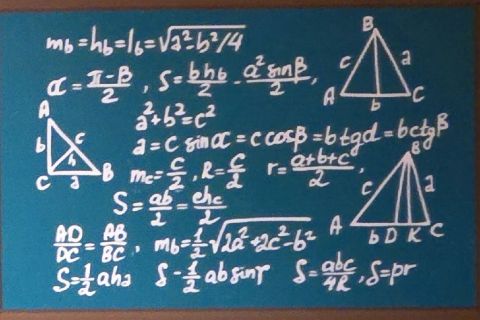 m_b=h_b=l_b=√a²-b²/4
α=(π-β)/2, S=bh_b/2-a²sinβ/2,
B
c a
A b C
a²+b²=c²
A
b c
h
C a B
a=c sinα=c cosβ=b tgα=b ctgβ
m_c=c/2, R=c/2 r=(a+b+c)/2,
S=ab/2=ehc/2
B
c a
A b D K C
AD/DC=AB/BC, m_b=1/2√2a²+2c²-b²
S=1/2aha S-1/2absinγ S=abc/4R, S=pr